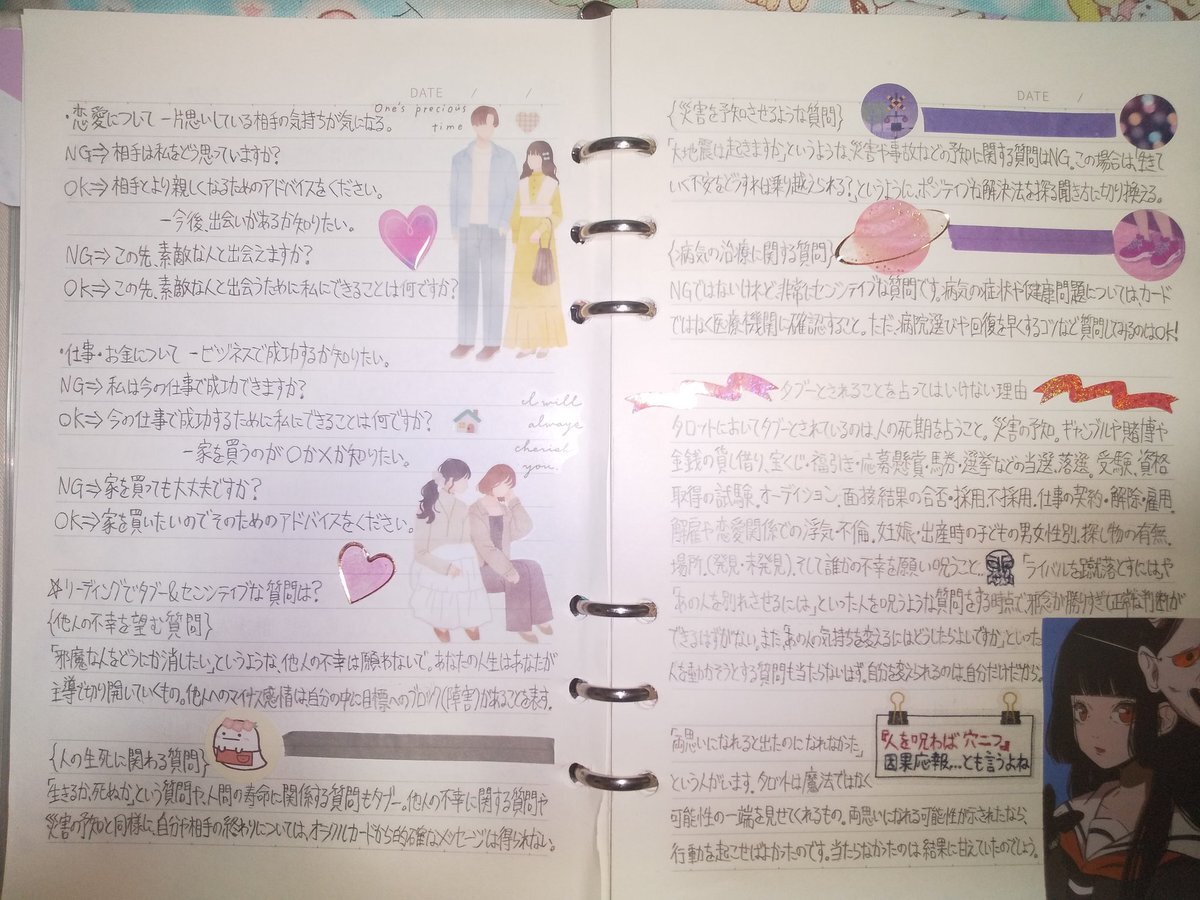 DATE / /
・恋愛について ー片思いしている相手の気持ちが気になる。
One's precious
time
NG⇒相手は私をどう思っていますか?
OK⇒相手とより親しくなるためのアドバイスをください。
ー今後、出会いがあるか知りたい。
NG⇒この先、素敵な人と出会えますか?
OK⇒この先、素敵な人と出会うために私にできることは何ですか?
・仕事・お金について ービジネスで成功するか知りたい。
NG⇒私は今の仕事で成功できますか?
OK⇒今の仕事で成功するために私にできることは何ですか?
I will
always
cherish
you.
ー家を買うのが〇か×か知りたい。
NG⇒家を買っても大丈夫ですか?
OK⇒家を買いたいのでそのためのアドバイスをください。
☆リーディングでタブー&センシティブな質問は?
{他人の不幸を望む質問}
「邪魔な人をどうにか消したい」というような、他人の不幸は願わないで。あなたの人生はあなたが
主導で切り開いていくもの。他人へのマイナス感情は自分の中に目標へのブロック(障害)があることを表す。
{人の生死に関わる質問}
「生きるか、死ぬか」という質問や、人間の寿命に関係する質問もタブー。他人の不幸に関する質問や
災害の予知と同様に、自分や相手の終わりについては、オラクルカードから的確なメッセージは得られない。
DATE /
{災害を予知させるような質問}
「大地震は起きますか」というような、災害や事故などの予知に関する質問はNG。この場合は、「生きて
いく不安をどうすれば乗り越えられる?」というように、ポジティブな解決法を探る聞き方に切り換える。
{病気の治療に関する質問}
NGではないけれど、非常にセンシティブな質問です。病気の症状や健康問題については、カード
ではなく医療機関に確認すること。ただ、病院選びや回復を早くするコツなど質問してみるのはOK!
タブーとされることを占ってはいけない理由
タロットにおいてタブーとされているのは、人の死期を占うこと。災害の予知。ギャンブルや賭博や
金銭の貸し借り、宝くじ・福引き・応募懸賞・馬券・選挙などの当選、落選。受験、資格
取得の試験。オーディション。面接結果の合否・採用、不採用。仕事の契約・解除・雇用、
解雇や恋愛関係での浮気・不倫。妊娠・出産時の子どもの男女性別、探し物の有無、
場所。(発見・未発見)。そして誰かの不幸を願い呪うこと…「ライバルを蹴落とすには」や
「あの人を別れさせるには」といった人を呪うような質問をする時点で、邪念が勝りすぎて正常な判断が
できるはずがない。また「あの人の気持ちを変えるにはどうしたらよいですか」といった
人を動かそうとする質問も当たらないはず。自分を変えられるのは、自分だけだから。
「両思いになれると出たのになれなかった」
という人がいます。タロットは魔法ではなく
『人を呪わば穴二つ』
因果応報…とも言うよね
可能性の一端を見せてくれるもの。両思いになれる可能性が示されたなら、
行動を起こせばよかったのです。当たらなかったのは結果に甘えていたのでしょう。